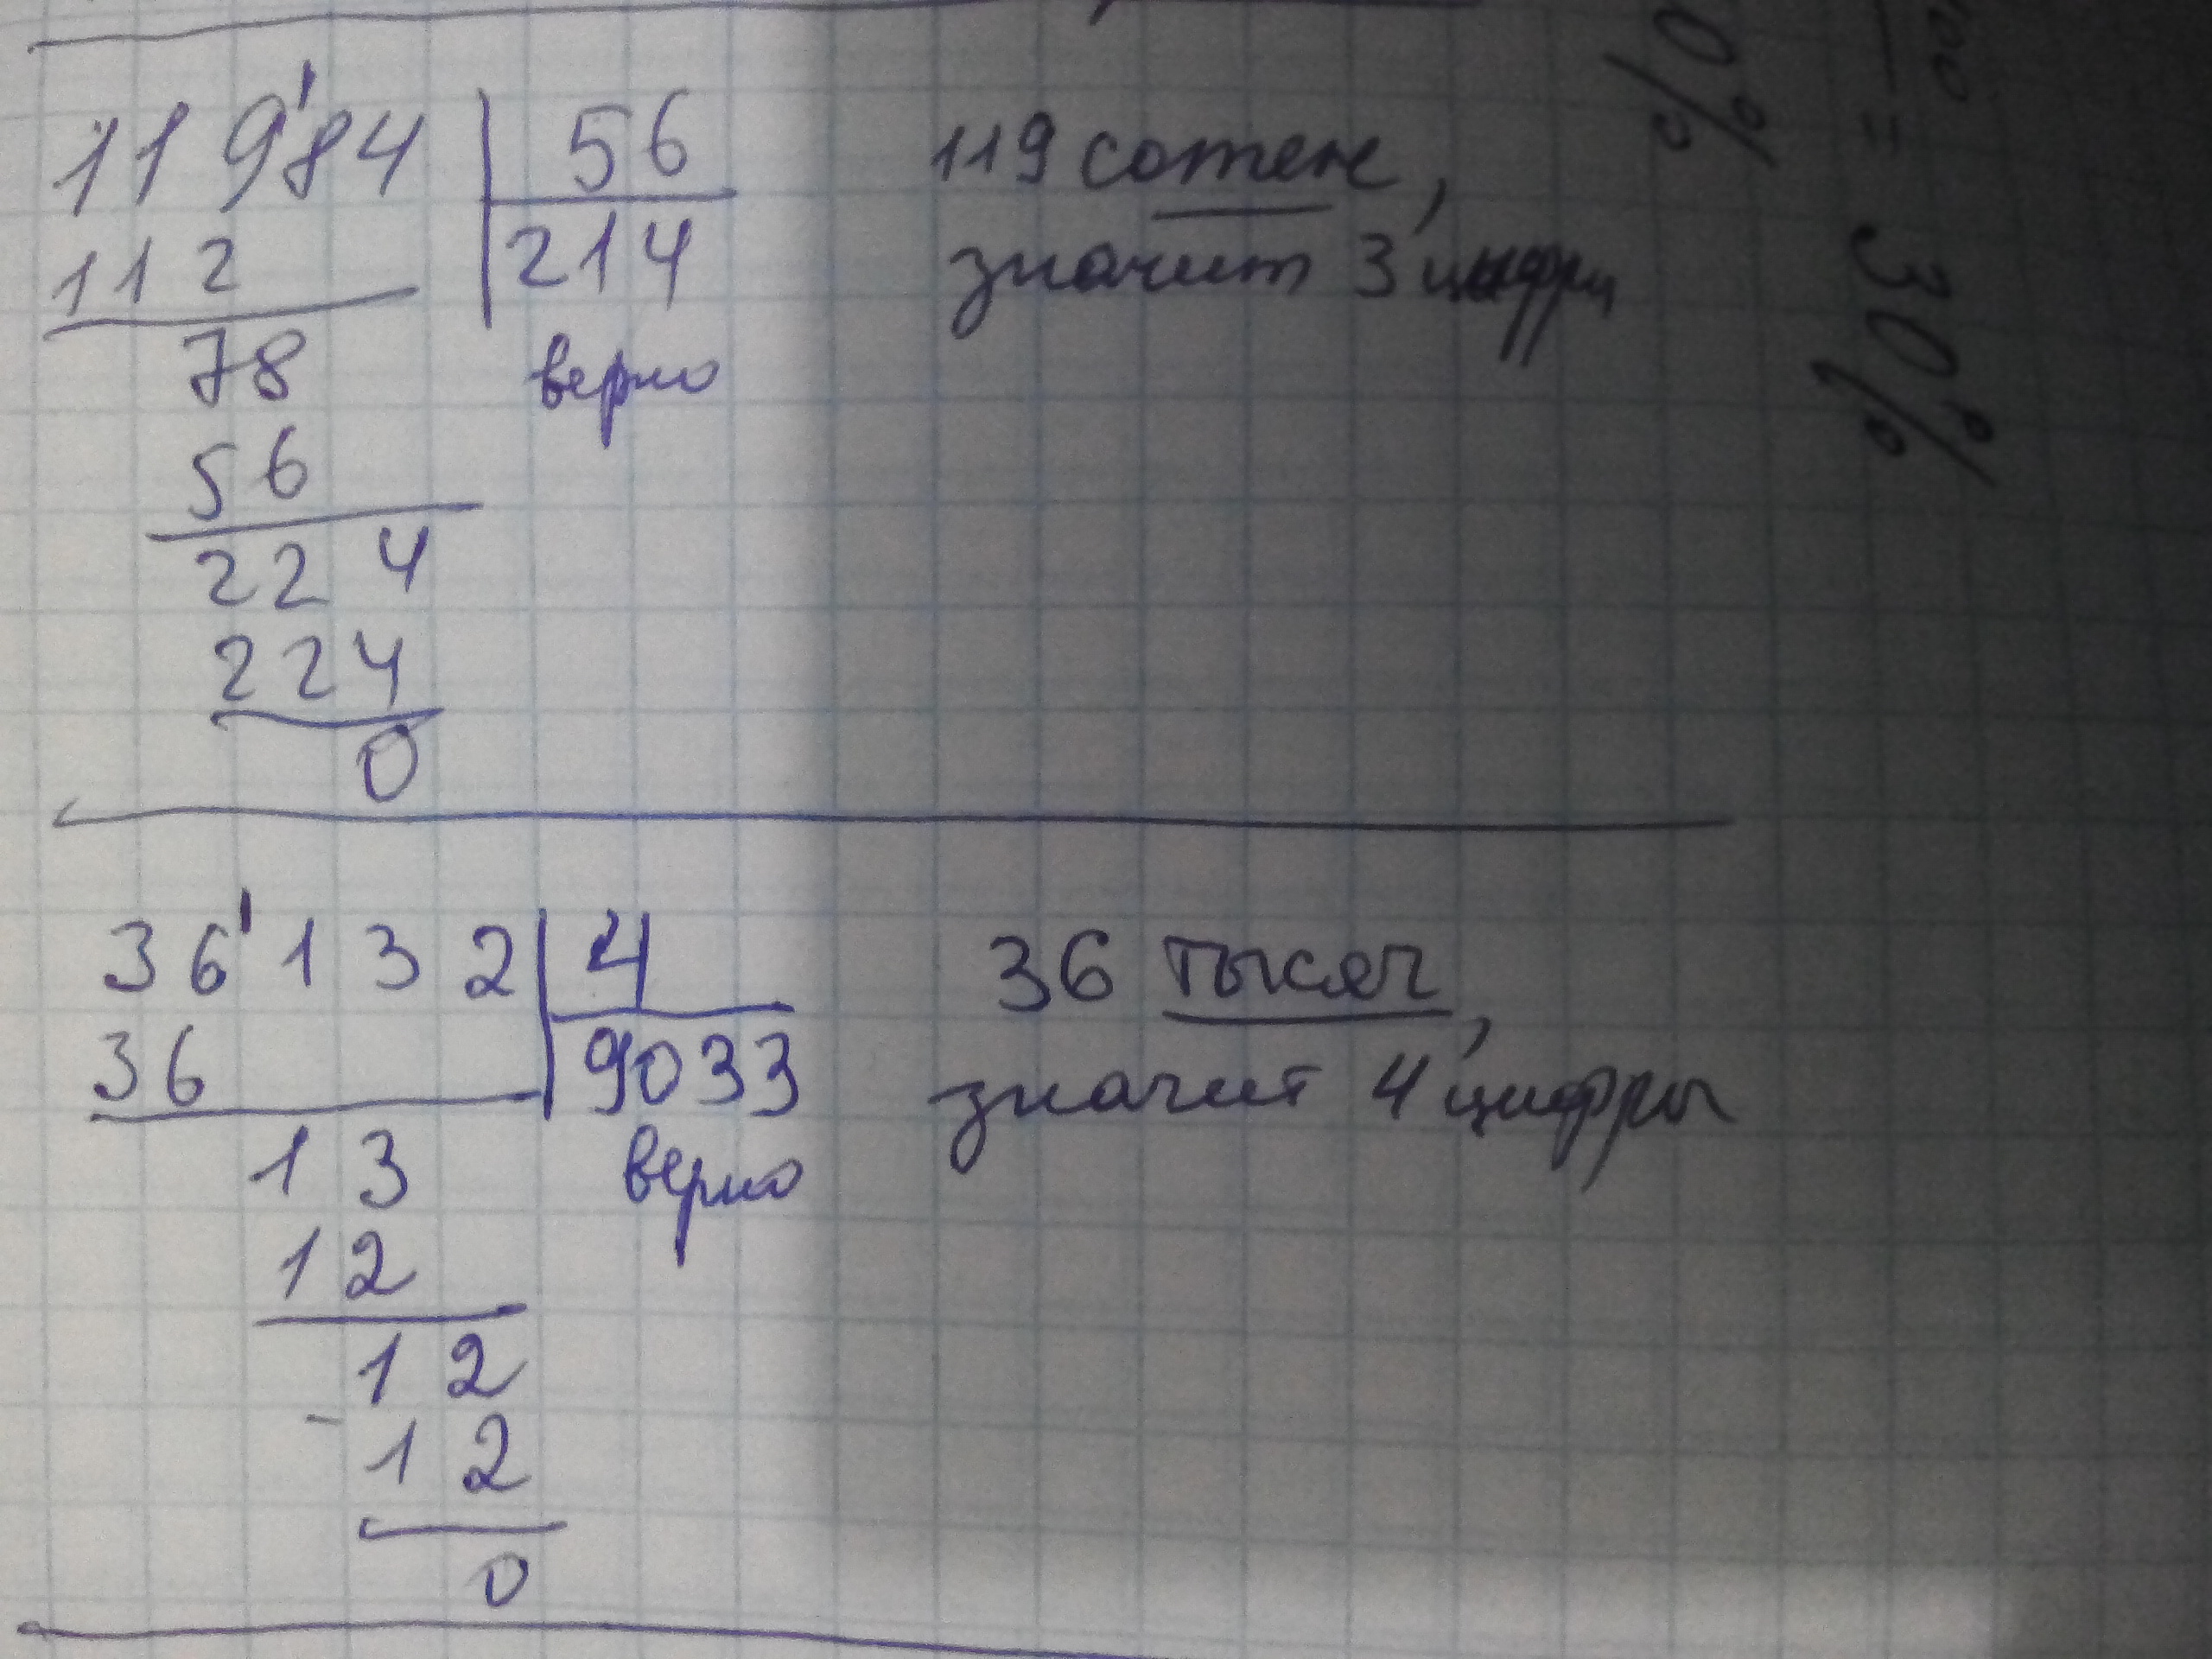 11 9'84 | 56
112 | 214
78
верно
56
224
224
0
119 сотен,
значит 3 цифры
36'132 | 4
36 | 9033
13
верно
12
12
- 12
0
36 тысяч,
значит 4 цифры
0%
= 30%